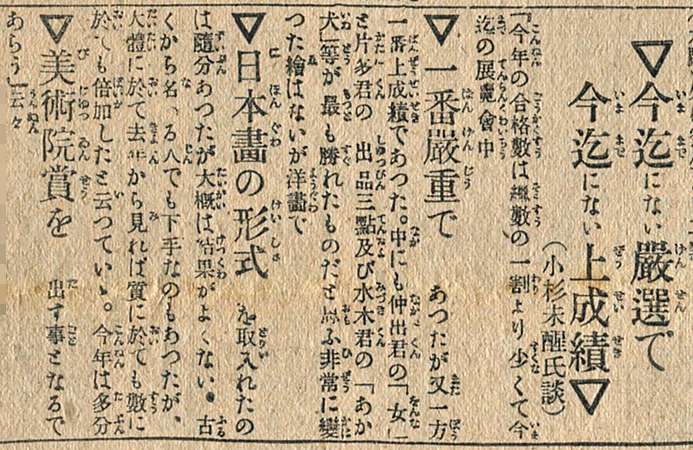 ▽今迄にない嚴選で
今迄にない上成績▽
(小杉未醒氏談)
「今年の合格數は總數の一割より少くて今
迄の展覽會中
▽一番嚴重で あつたが又一方
一番上成績であつた。中にも仲出君の「女」
と片多君の 出品三點及び水木君の「あか
犬」等が最も勝れたものだと思ふ非常に變
つた繪はないが洋畫で
▽日本畫の形式 を取入れたの
は隨分あつたが大概は結果がよくない。古
くから名 る人でも下手なのもあつたが、
大體に於て去年から見れば質に於ても數に
於ても倍加したと云つていゝ。今年は多分
▽美術院賞を 出す事となるで
あらう」云々